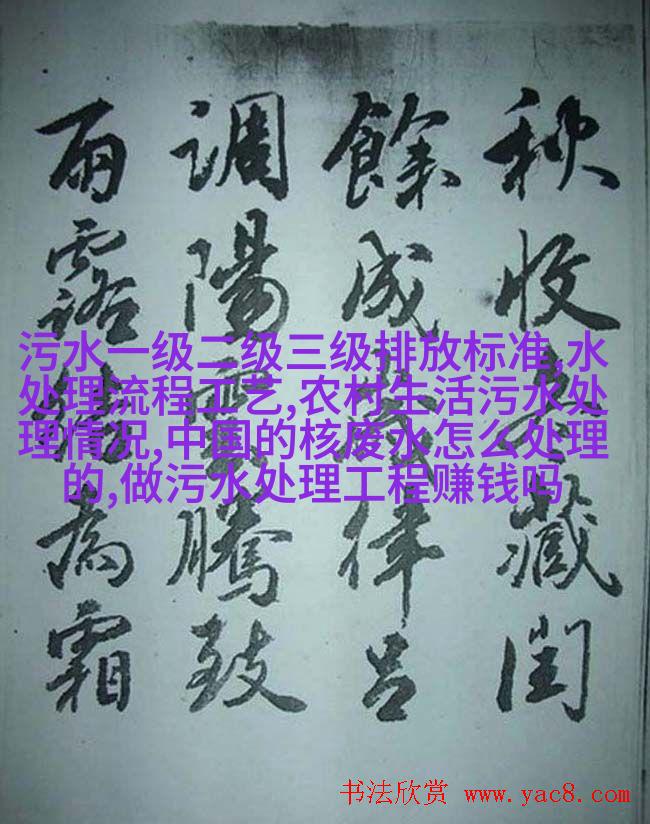 秋收冬藏閏
餘成歲律呂
調陽雲騰致
雨露結為霜
污水一级二级三级排放标准,水
处理流程工艺,农村生活污水处
理情况,中国的核废水怎么处理
的,做污水处理工程赚钱吗
书法欣赏 www.yac8.com